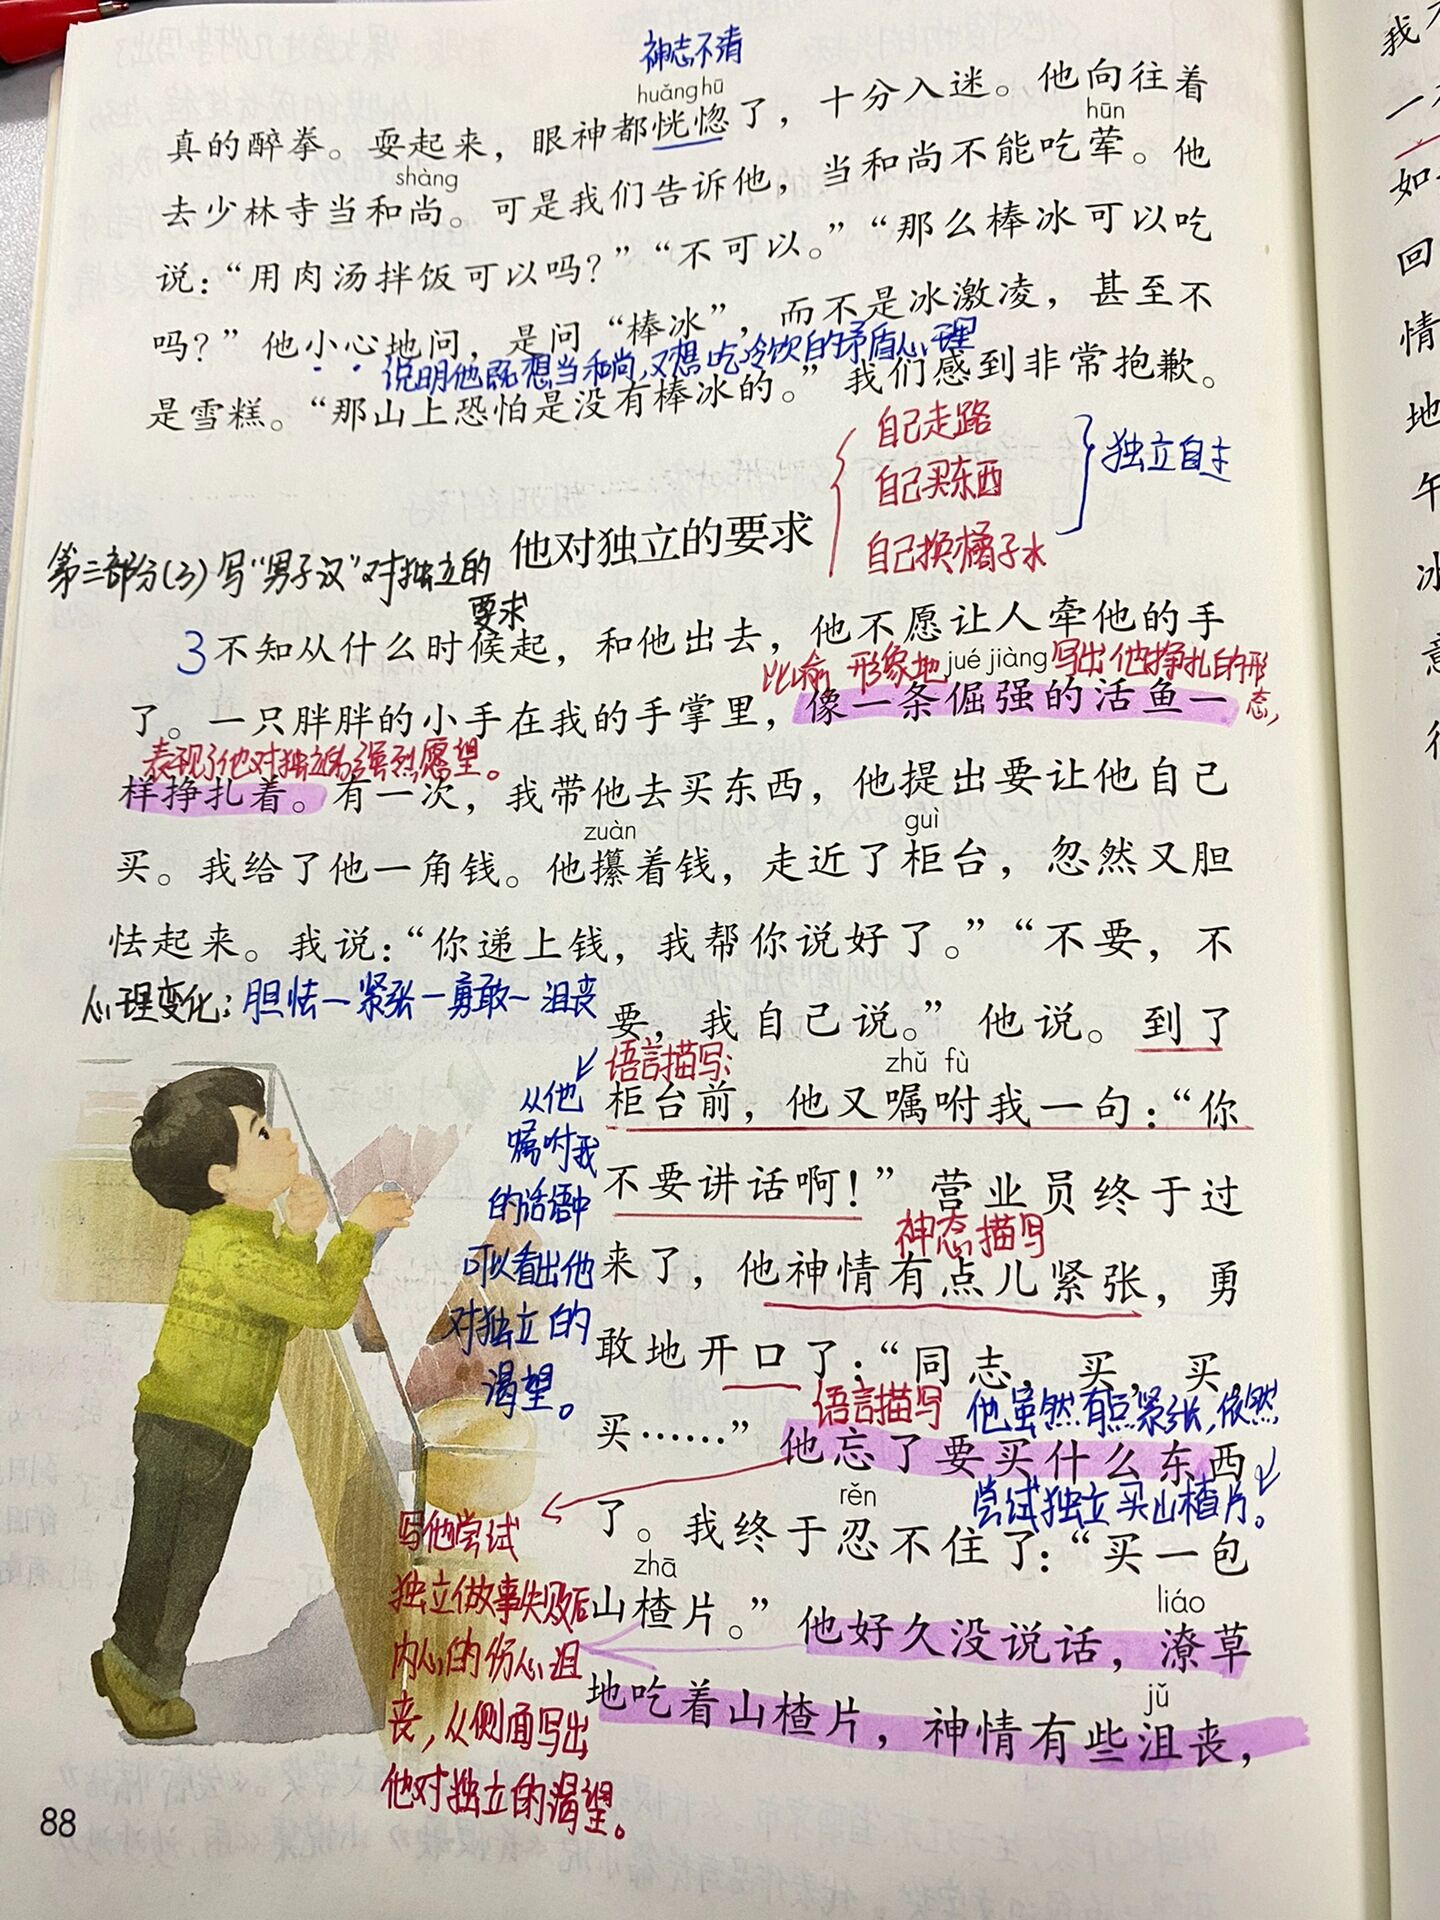 神志不清
huǎng hū
真的醉拳。耍起来，眼神都恍惚了，十分入迷。他向往着
shàng
hūn
去少林寺当和尚。可是我们告诉他，当和尚不能吃荤。他
说：“用肉汤拌饭可以吗？”“不可以。”“那么棒冰可以吃
吗？”他小心地问，是问“棒冰”，而不是冰激凌，甚至不
说明他既想当和尚，又想吃冷饮的矛盾心理
是雪糕。“那山上恐怕是没有棒冰的。”我们感到非常抱歉。
自己走路
自己买东西
自己换橘子水
独立自主
他对独立的要求
第二部分(3)写“男子汉”对独立的
要求
3不知从什么时候起，和他出去，他不愿让人牵他的手
比喻 形象地
jué jiàng
写出他挣扎的形
态，
了。一只胖胖的小手在我的手掌里，像一条倔强的活鱼一
表现了他对独立的强烈愿望。
样挣扎着。有一次，我带他去买东西，他提出要让他自己
zuàn
guì
买。我给了他一角钱。他攥着钱，走近了柜台，忽然又胆
怯起来。我说：“你递上钱，我帮你说好了。”“不要，不
心理变化：胆怯—紧张—勇敢—沮丧
要，我自己说。”他说。到了
语言描写：
zhǔ fù
柜台前，他又嘱咐我一句：“你
不要讲话啊！”营业员终于过
从他
嘱咐我
的话语中
可以看出他
对独立的
渴望。
神态描写
来了，他神情有点儿紧张，勇
敢地开口了：“同志，买，买，
语言描写
他虽然有点紧张，依然
尝试独立买山楂片。
买……”他忘了要买什么东西
rěn
了。我终于忍不住了：“买一包
zhā
山楂片。”他好久没说话，潦草
liáo
地吃着山楂片，神情有些沮丧，
jǔ
写他尝试
独立做事失败后
内心的伤心沮
丧，从侧面写出
他对独立的渴望。
88
我
一
如
回
情
地
午
冰
意